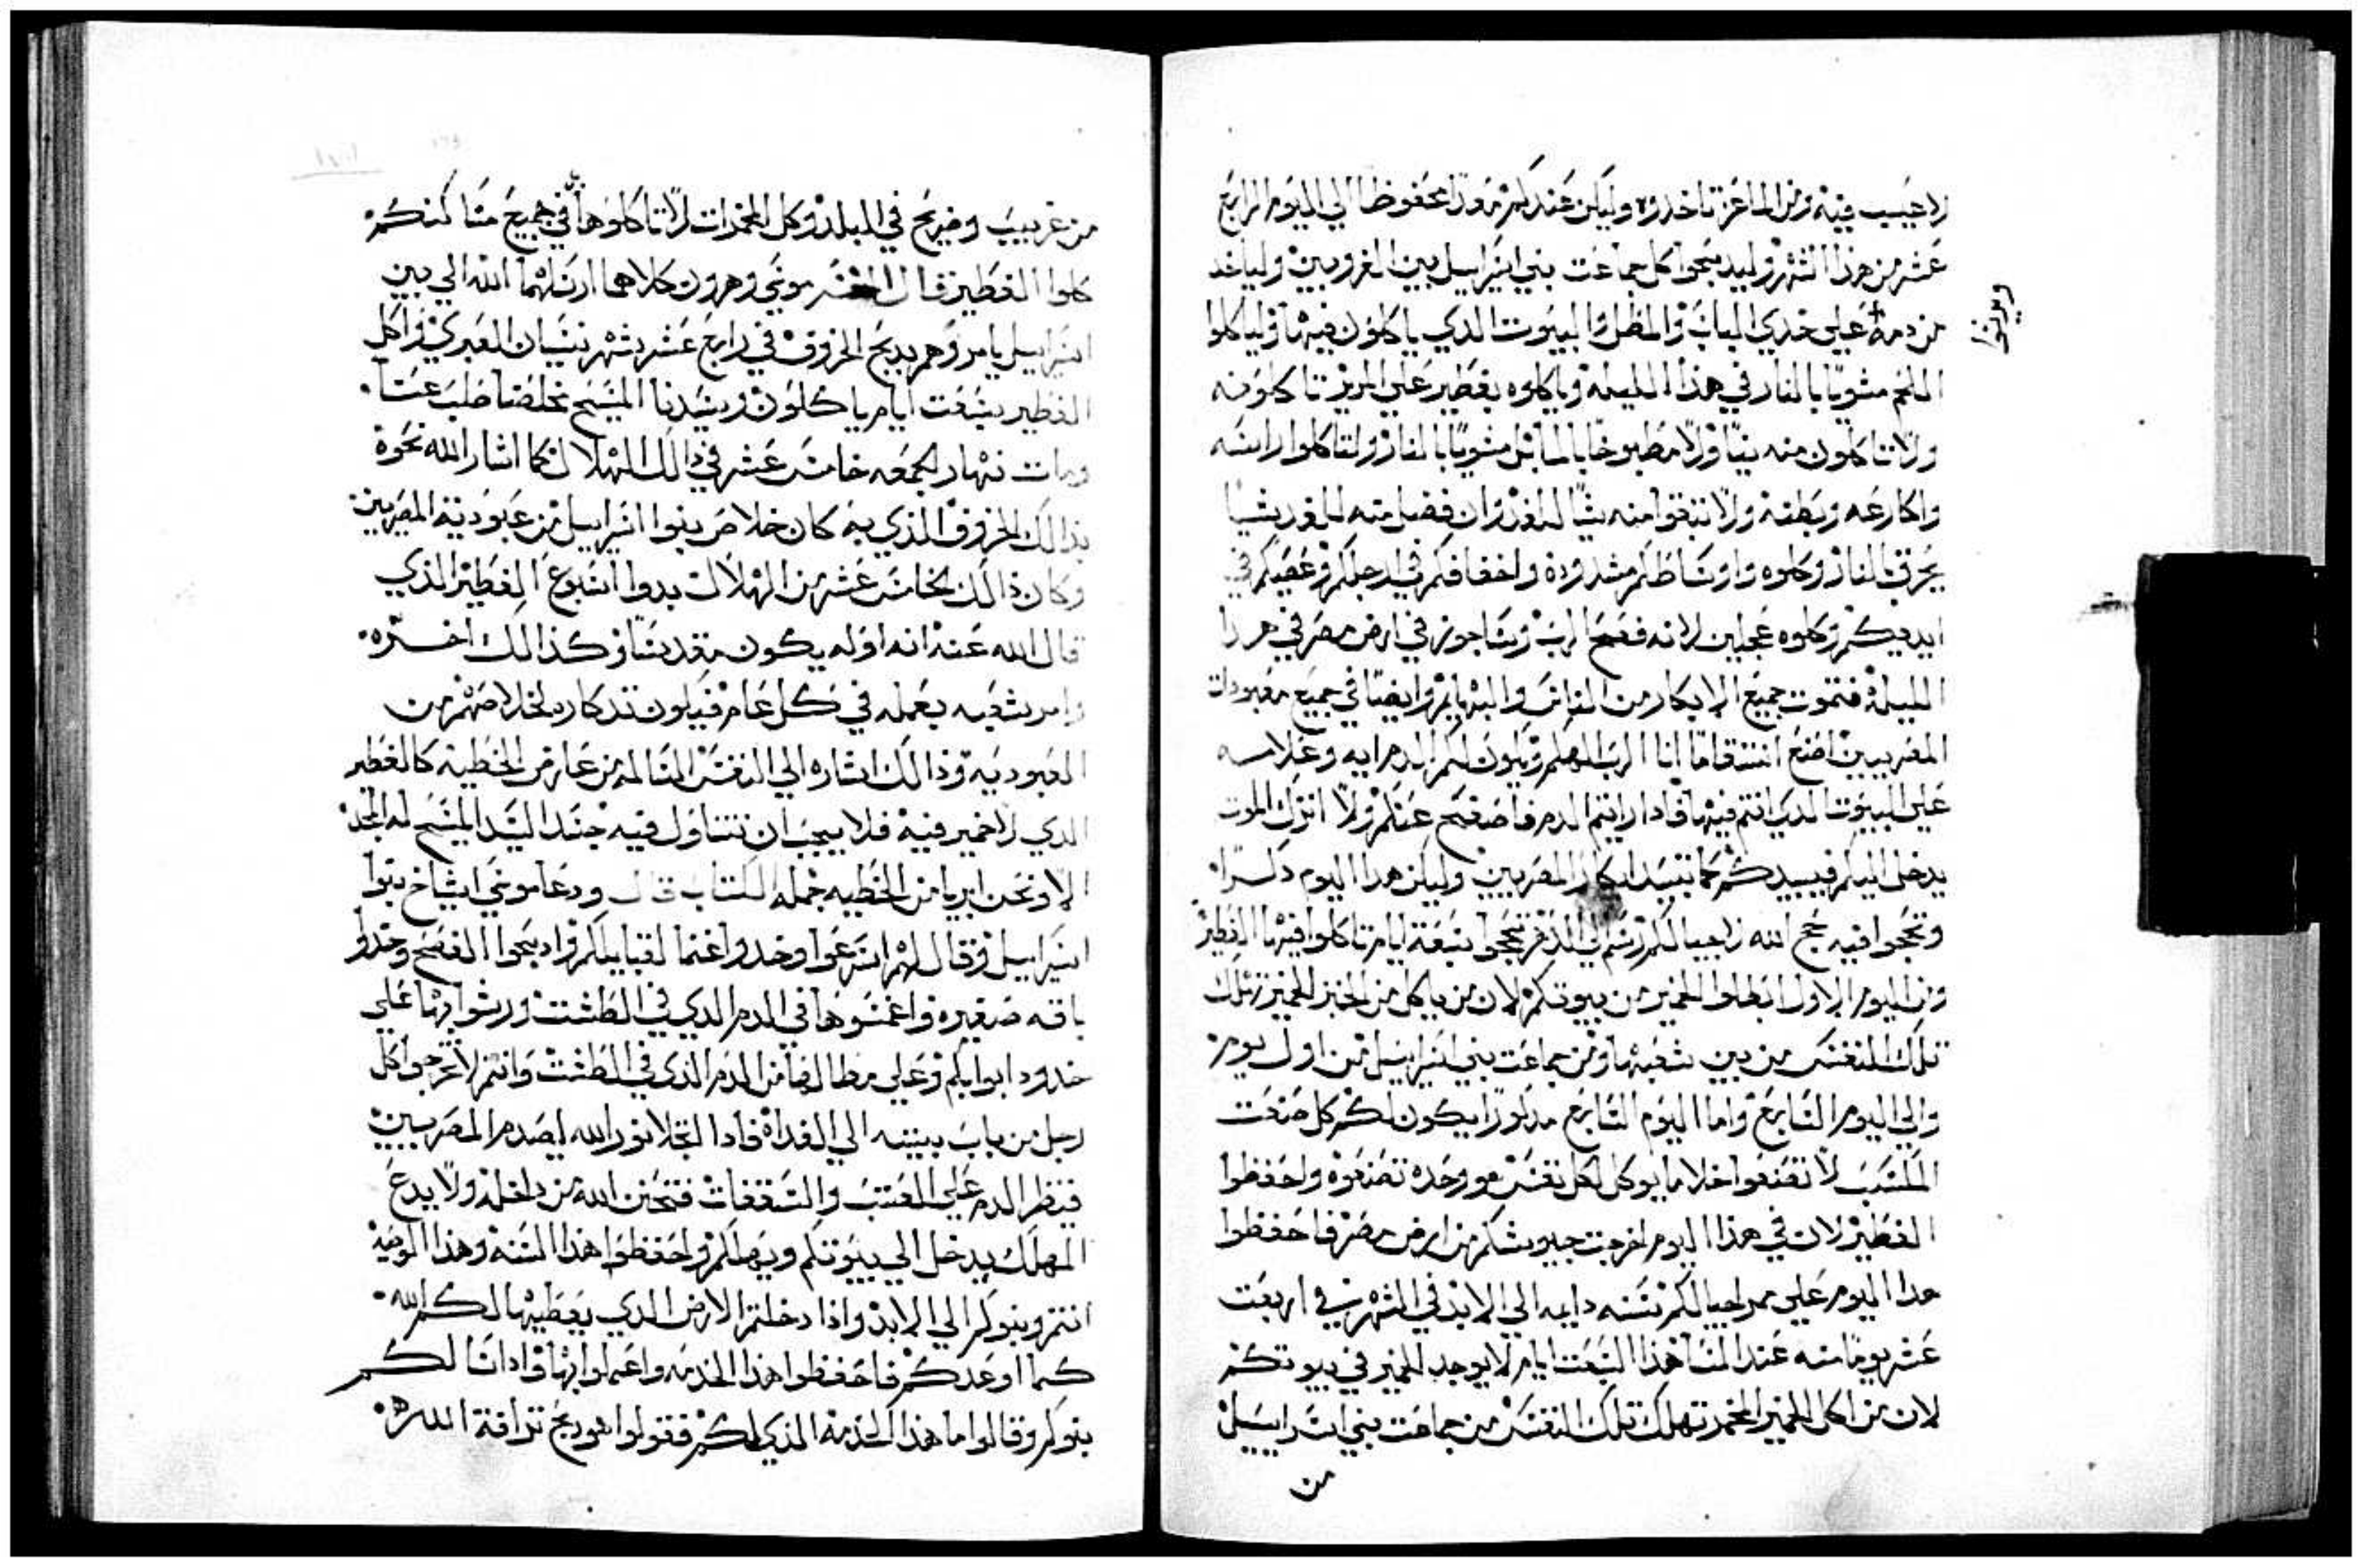 لا عيب فيه ومن الماعز تاخدوه وليكن عندكم مودا محفوظا الي اليوم الرابع
عشر من هذا الشهر وليدبحوا كل جماعت بني اسراييل بين الغروبين ولياخد
من دمه علي خدي الباب والمطل والبيوت الدي ياكلون فيها ولياكلوا
ويرشوا
اللحم مشويا بالنار في هذا الليله وياكلوه بفطير علي المرير تاكلو منه
ولا تاكلون منه نيا ولا مطبوخا بالما بل مشويا بالنار ولتاكلوا راسه
واكارعه وبطنه ولا تبقوا منه شيا للغد وان فضل منه للغد شيا
يحرق بالنار وكلوه واوساطكم مشدودة واخفافكم في ارجلكم وعصيكم في
ايديكم وكلوه عجلين لانه فصح الرب وساجوز في ارض مصر في هدا
الليلة فتموت جميع الابكار من الناس والبهايم وايضا في جميع معبودات
المصريين اصنع انتقاما انا الرب الهكم ويكون لكم الدم ايه وعلامه
علي البيوت الدي انتم فيها فادا رايتم الدم فاصفح عنكم ولا اترك الموت
يدخل اليكم فيبيدكم كما تبيد ابكار المصريين وليكن هدا اليوم دكرا
وتحجوا فيه حج الله لاجيالكم رسم الي الدهر تحجوا سبعة ايام تاكلوا فيها الفطير
ومن اليوم الاول ابطلوا الخمير من بيوتكم لان من ياكل من الخبز الخمير تهلك
تلك النفس من بين شعبها ومن جماعت بني اسراييل من اول يوم
والي اليوم السابع واما اليوم السابع مدكورا يكون لكم كل صنعت
المكسب لا تصنعوا خلا ما يوكل لكل نفس هو وحده تصنعوه واحفظوا
الفطير لان في هذا اليوم اخرجت جيوشكم من ارض مصر فاحفظوا
هدا اليوم علي ممر اجيالكم سنه دايمه الي الابد في الشهر في اربعت
عشر يوما منه عند المسا هذا السبعت ايام لا يوجد الخمير في بيوتكم
لان من اكل الخمير المخمر تهلك تلك النفس من جماعت بني اسراييل
من
من غريب وضريح في البلد وكل المخمرات لا تاكلوها في جميع مساكنكم
كلوا الفطير قال المفسر موسي وهرون كلاهما ارسلهما الله الي بين
اسراييل يامروهم بدبح الخروف في رابع عشر شهر نيسان العبري واكل
الفطير سبعت ايام ياكلون وسيدنا المسيح مخلصنا صلب عنا
ومات نهار الجمعه خامس عشر في دالك الهلال كما اشار الله نحوه
بدالك الخروف الذي به كان خلاص بنوا اسراييل من عبودية المصريين
وكان ذالك الخامس عشر من الهلال بدوا اسبوع الفطير الذي
قال الله عنه انه اوله يكون مقدسا وكذالك اخره
وامر شعبه بعمله في كل عام فيكون تدكار لخلاصهم من
العبوديه وذالك اشاره الي النفس السالمه من عار من الخطيه كالفطير
الدي لا خمير فيه فلا يجب ان نتناول فيه جسد السيد المسيح له المجد
الا ونحن ابريا من الخطيه جمله الكتاب قال ودعا موسي اشياخ بنوا
اسراييل وقال لهم اسرعوا وخدوا غنما لقبايلكم وادبحوا الفصح وخدوا
باقه صغيره واغمسوها في الدم الدي في الطشت ورشوا بها علي
خدود ابوابكم وعلي مطالها من الدم الذي في الطشت وانتم لا تخرجوا كل
رجل من باب بيته الي الغداة فادا اتجلا نور الله ليصدم المصريين
فينظر الدم علي العتب والسقفات فتحنن الله من داخله ولا يدع
المهلك يدخل الي بيوتكم ويهلكم واحفظوا هذا السنة وهذا الوصيه
انتم وبنوكم الي الابد واذا دخلتم الارض الدي يعطيها لكم الله
كما اوعدكم فاحفظوا هذا الخدمه واعملوا بها واداسالكم
بنوكم وقالوا ما هذا الخدمة الذي لكم فقولوا هو دبح ترافة الله